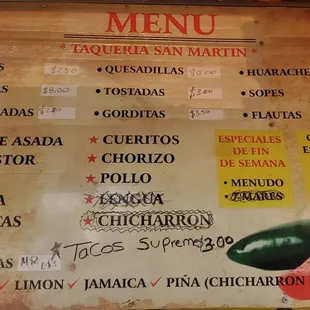 MENU
• TAQUERIA SAN MARTIN •
$2.50 • QUESADILLAS • HUARACHE
$8.00 • TOSTADAS $3.00 • SOPES
ADAS • GORDITAS $3.50 • FLAUTAS
E ASADA ★ CUERITOS
STOR ★ CHORIZO
★ POLLO
★ LENGUA
TAS ★ CHICHARRON
ESPECIALES
DE FIN
DE SEMANA
• MENUDO
• 7 MARES
★ TACOS Supreme 3.00
AS
✓ LIMON ✓ JAMAICA ✓ PIÑA (CHICHARRON